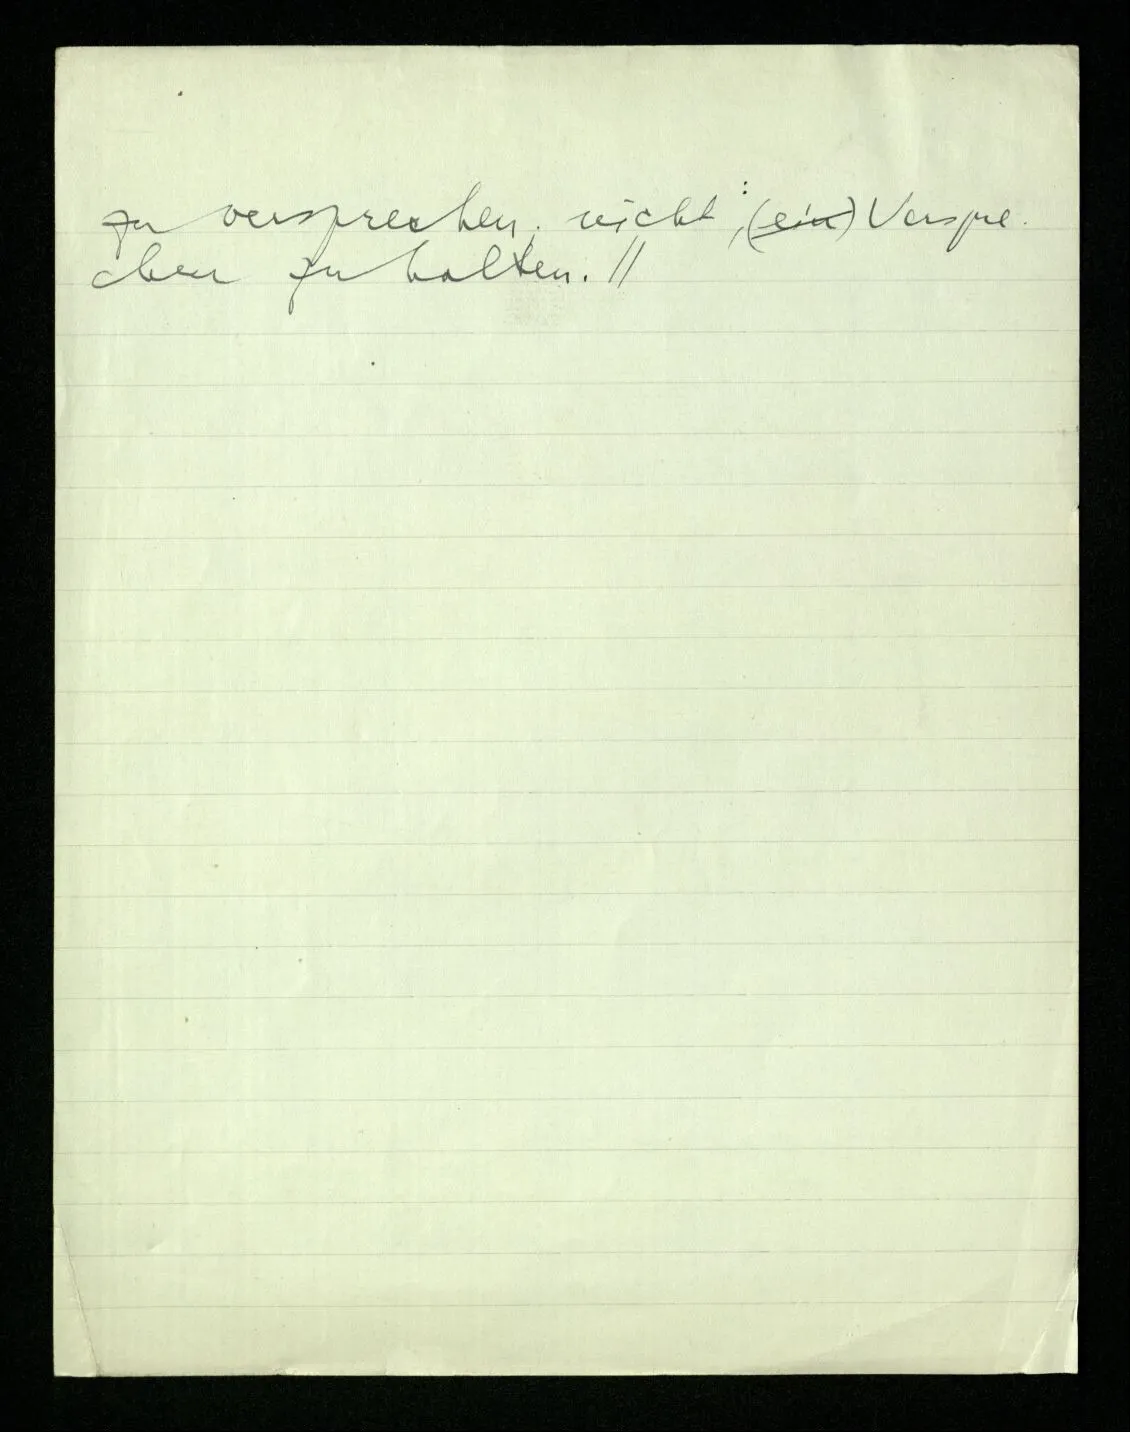 zu versprechen, nicht, (ein) Verspre-
chen zu halten. //